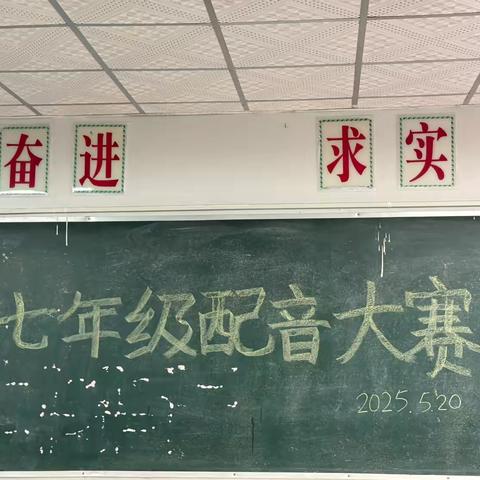 奋进 求实
七年级配音大赛
2025.5.20